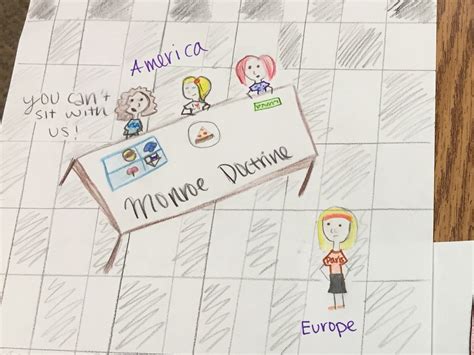 America
you can't
sit with
us!
Monroe Doctrine
Paris
Europe